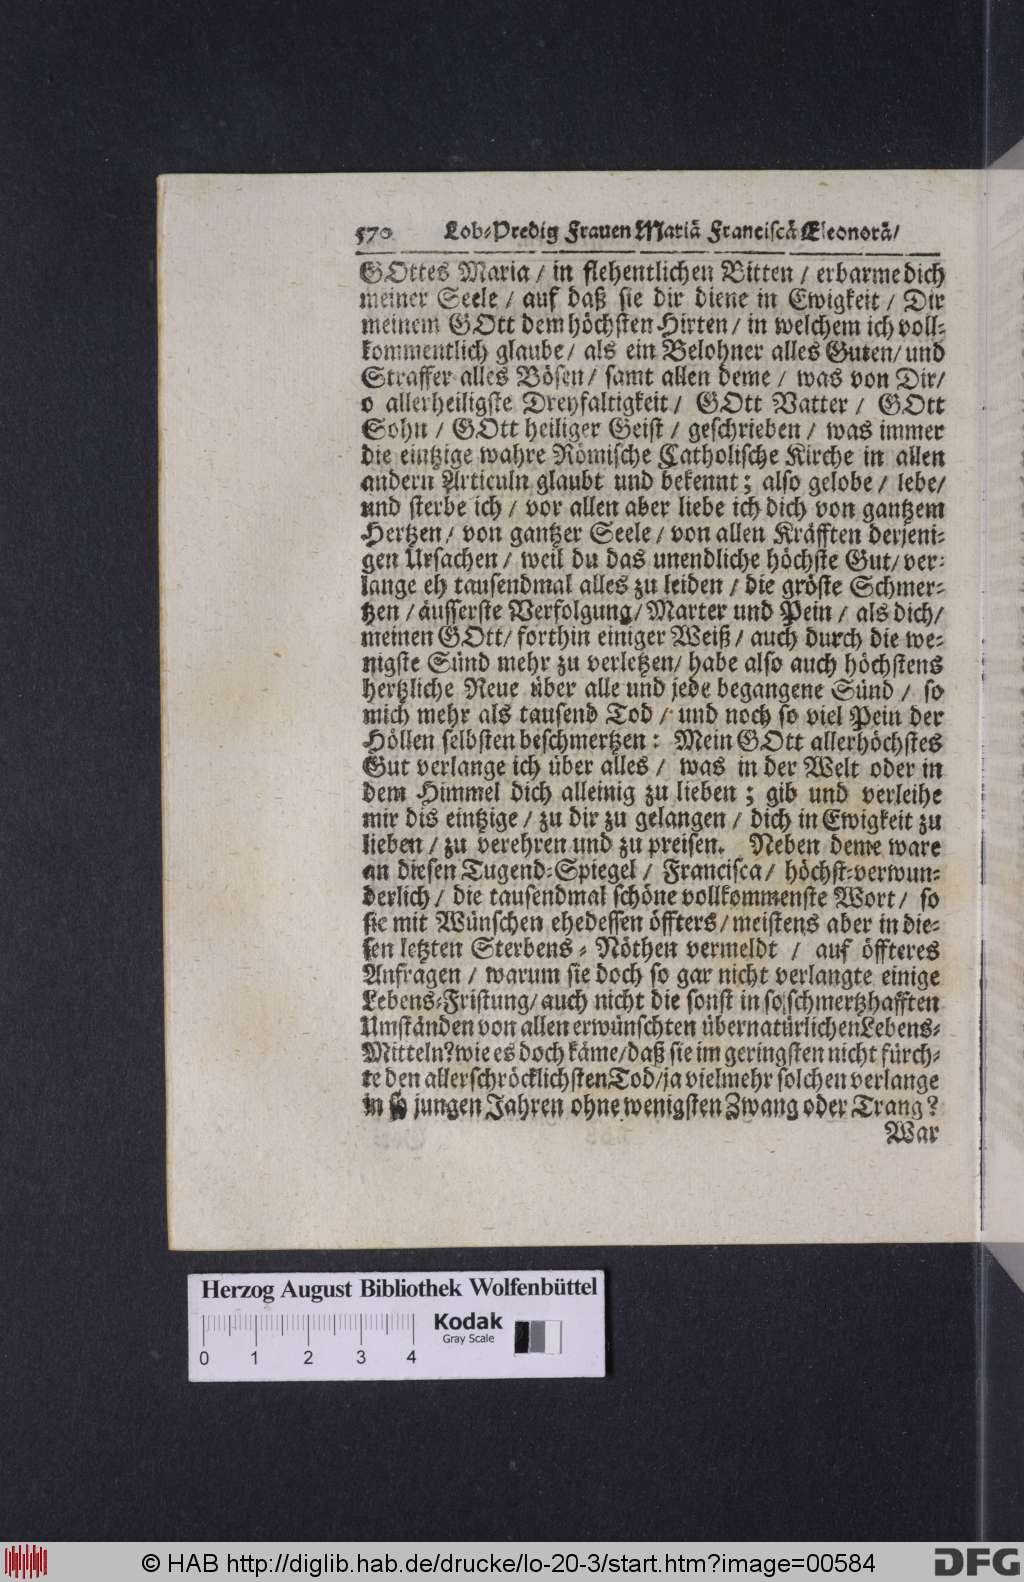 570 Lob-Predig Frauen Mariä Franciscä Eleonorä/
GOttes Maria / in flehentlichen Bitten / erbarme dich
meiner Seele / auf daß sie dir diene in Ewigkeit / Dir
meinem GOtt dem höchsten Hirten / in welchem ich voll-
kommentlich glaube / als ein Belohner alles Guten / und
Straffer alles Bösen / samt allen deme / was von Dir /
o allerheiligste Dreyfaltigkeit / GOtt Vatter / GOtt
Sohn / GOtt heiliger Geist / geschrieben / was immer
die eintzige wahre Römische Catholische Kirche in allen
andern Articuln glaubt und bekennt; also gelobe / lebe /
und sterbe ich / vor allen aber liebe ich dich von gantzem
Hertzen / von gantzer Seele / von allen Kräfften derjeni-
gen Ursachen / weil du das unendliche höchste Gut / ver-
lange eh tausendmal alles zu leiden / die gröste Schmer-
tzen / äusserste Verfolgung / Marter und Pein / als dich /
meinen GOtt / forthin einiger Weiß / auch durch die we-
nigste Sünd mehr zu verletzen / habe also auch höchstens
hertzliche Reue über alle und jede begangene Sünd / so
mich mehr als tausend Tod / und noch so viel Pein der
Höllen selbsten beschmertzen: Mein GOtt allerhöchstes
Gut verlange ich über alles / was in der Welt oder in
dem Himmel dich alleinig zu lieben; gib und verleihe
mir dis eintzige / zu dir zu gelangen / dich in Ewigkeit zu
lieben / zu verehren und zu preisen. Neben deme ware
an diesen Tugend-Spiegel / Francisca / höchst-verwun-
derlich / die tausendmal schöne vollkommenste Wort / so
sie mit Wünschen ehedessen öffters / meistens aber in die-
sen letzten Sterbens-Nöthen vermeldt / auf öffteres
Anfragen / warum sie doch so gar nicht verlangte einige
Lebens-Fristung / auch nicht die sonst in so schmertzhafften
Umständen von allen erwünschten übernatürlichen Lebens-
Mitteln? wie es doch käme / daß sie im geringsten nicht fürch-
te den allerschröcklichsten Tod / ja vielmehr solchen verlange
in so jungen Jahren ohne wenigsten Zwang oder Trang?
War
Herzog August Bibliothek Wolfenbüttel
Kodak
Gray Scale
0 1 2 3 4
© HAB http://diglib.hab.de/drucke/lo-20-3/start.htm?image=00584
DFG